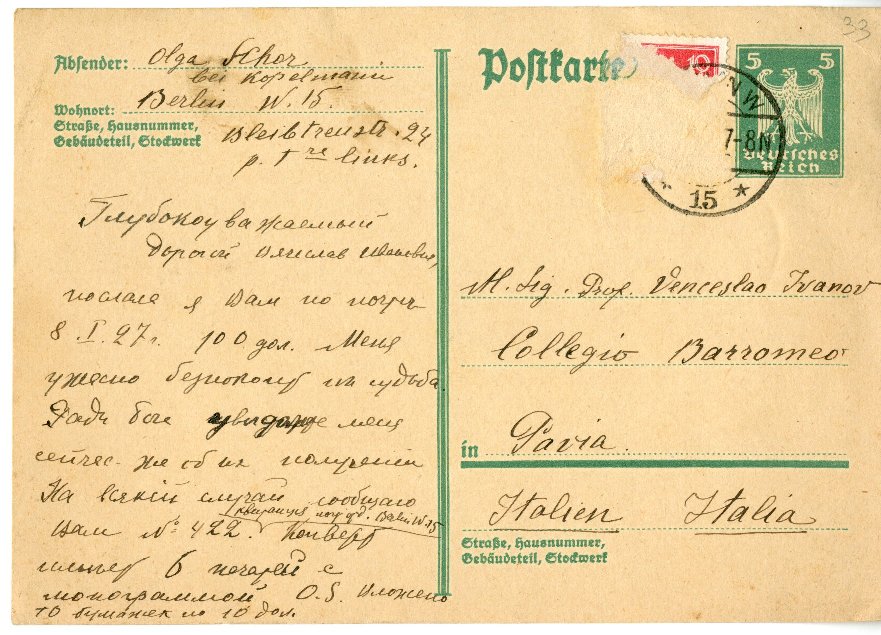 33
Absender: Olga Schor
bei Kopelmann
Wohnort: Berlin W. 15.
Straße, Hausnummer,
Gebäudeteil, Stockwerk
Bleibtreustr. 24
p. tre links.
Postkarte
10
5 5
Deutsches
Reich
7-8N
* 15 *
Глубокоуважаемый
дорогой Вячеслав Иванович,
послала я Вам по почте
8.I.27г. 100 дол. Меня
ужасно беспокоит их судьба.
Ради бога уведомьте меня
сейчас-же об их получении
На всякий случай сообщаю
Вам № 422. Конверт
(квитанция Berlin W 15
имеет 6 печатей с
монограммой O.S. Вложено
10 бумажек по 10 дол.
M. Sig. Prof. Venceslao Ivanov
Collegio Barromeo
in Pavia.
Italien Italia
Straße, Hausnummer,
Gebäudeteil, Stockwerk